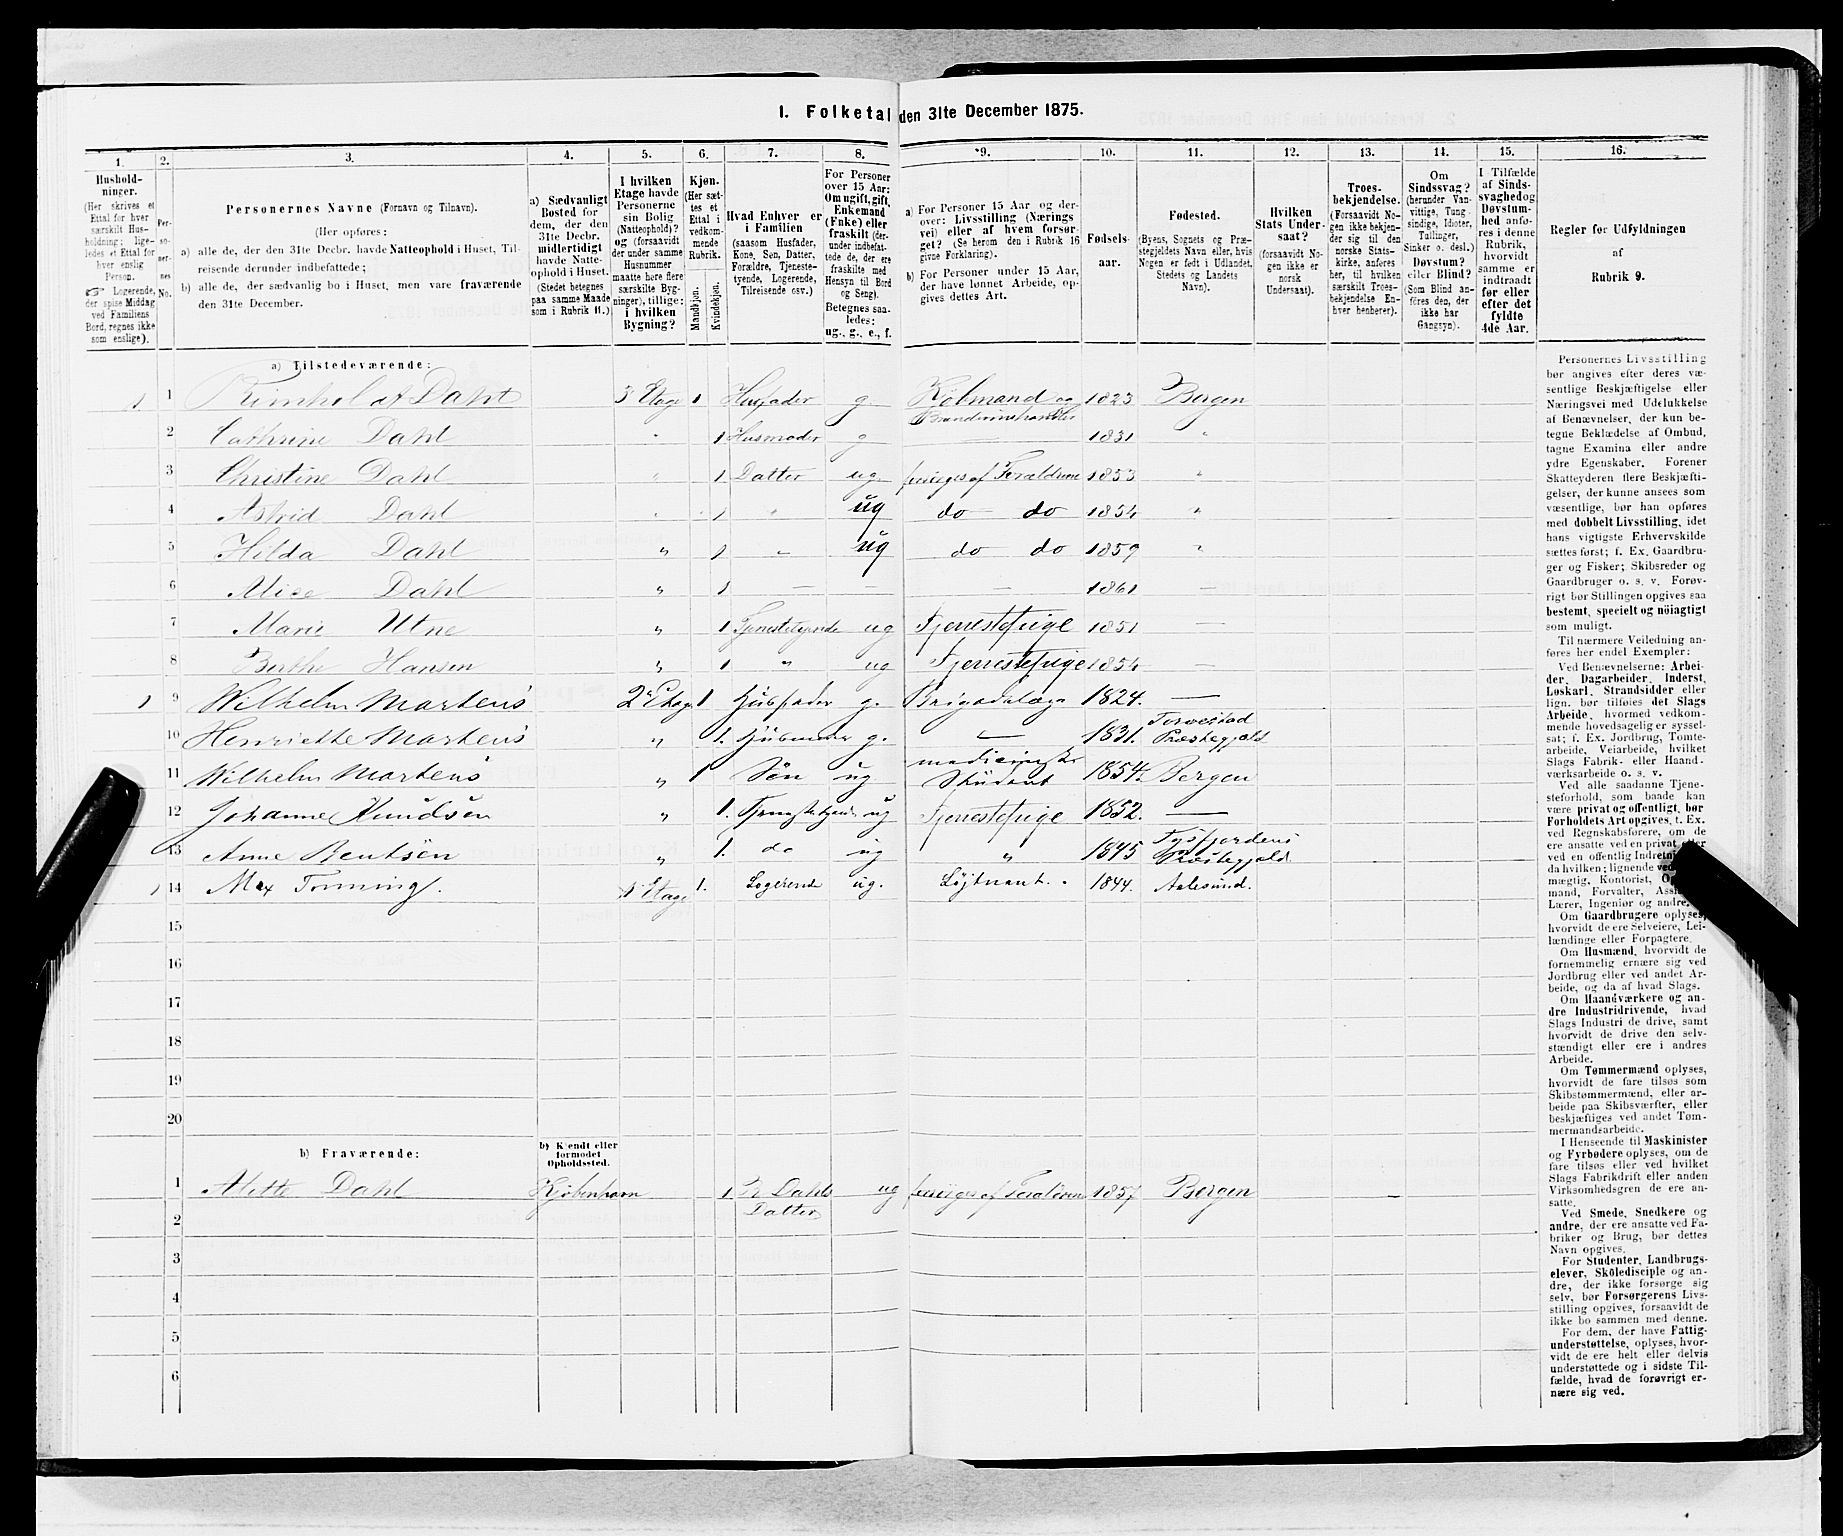 I. Folketal den 31te December 1875.
1. 2. 3. 4. 5. 6. 7. 8. 9. 10. 11. 12. 13. 14. 15. 16.
Hushold-
ninger.
(Her skrives et
Ettal for hver
særskilt Hus-
holdning; lige-
ledes et Ettal for
hver enslig
Person.
☞ Logerende,
der spise Middag
ved Familiens
Bord, regnes ikke
som enslige).
Per-
so-
ner-
nes
No.
Personernes Navne (Fornavn og Tilnavn).
(Her opføres:
a) alle de, der den 31te Decbr. havde Natteophold i Huset, Til-
reisende derunder indbefattede;
b) alle de, der sædvanlig bo i Huset, men vare fraværende
den 31te December.
a) Sædvanligt
Bosted for
dem, der den
31te Decbr.
midlertidigt
havde Natte-
ophold i Huset.
(Stedet betegnes
paa samme Maade
som i Rubrik 11.)
I hvilken
Etage havde
Personerne
sin Bolig
(Natteophold)?
og (forsaavidt
der under samme
Husnummer
maatte høre flere
særskilte Byg-
ninger), tillige:
i hvilken
Bygning?
Kjøn.
(Her sæt-
tes et
Ettal i
vedkom-
mende
Rubrik.
Mandkjøn.
Kvindekjøn.
Hvad Enhver er
i Familien
(saasom Husfader,
Kone, Søn, Datter,
Forældre, Tjeneste-
tyende, Logerende,
Tilreisende osv.)
For Personer
over 15 Aar:
Om ugift, gift,
Enkemand
(Enke) eller
fraskilt (der-
under indbefat-
tede de, der ere
fraskilte med
Hensyn til Bord
og Seng).
Betegnes saa-
ledes:
ug., g., e., f.
a) For Personer 15 Aar og der-
over: Livsstilling (Nærings
vei) eller af hvem forsør-
get? (Se herom den i Rubrik 16
givne Forklaring).
b) For Personer under 15 Aar,
der have lønnet Arbeide, op-
gives dettes Art.
Fødsels-
aar.
Fødested.
(Byens, Sognets og Præ-
stegjeldets Navn eller, hvis
Nogen er født i Udlandet,
Stedets og Landets
Navn).
Hvilken
Stats Under-
saat?
(forsaavidt No-
gen ikke er
norsk
Undersaat).
Troes-
bekjendelse.
(Forsaavidt No-
gen ikke bekjen-
der sig til den
norske Stats-
kirke, anføres
her, til hvilken
særskilt Troes-
bekjendelse En-
hver henhører).
Om
Sindssvag?
(herunder Van-
vittige, Tung-
sindige, Idioter,
Tullinger,
Sinker o. desl.)
Døvstum?
eller Blind?
(Som Blind an-
føres den, der
ikke har
Gangsyn).
I Tilfælde
af Sinds-
svaghed og
Døvstum-
hed anfø-
res i denne
Rubrik,
hvorvidt
samme er
indtraadt
før eller
efter det
fyldte
4de Aar.
Regler for Udfyldningen
af
Rubrik 9.
a) Tilstedeværende:
1 1 Reinholdt Dahl 3 Etage 1 Husfader g. Købmand og Brændevinshandler 1823 Bergen
2 Cathrine Dahl " 1 Husmoder g — 1831 "
3 Christine Dahl " 1 Datter ug. forsørges af Forældrene 1853 "
4 Astrid Dahl " 1 " ug do do 1854 "
5 Hilda Dahl " 1 " ug do do 1859 "
6 Alice Dahl " 1 — — — 1861 —
7 Marie Utne " 1 Tjenestetyende ug Tjenestepige 1851 —
8 Berthe Hansen " 1 " ug Tjenestepige 1854 —
1 9 Wilhelm Martens 2 Etage 1. Husfader g. Brigadelæge 1824. —
10 Henriette Martens " 1. Husmoder g. — 1831. Torvestad Præstegjeld
11 Wilhelm Martens " 1 Søn ug medicinsk Student 1854. Bergen
12 Johanne Knudsen " 1. Tjenestetyende ug Tjenestepige 1852. —
13 Anne Bentsen " 1. do ug " 1845 Præstegjeld
1 14 Max Tonning. 1 Etage 1. Logerende ug. Løjtnant. 1844. Aalesund.
15
16
17
18
19
20
b) Fraværende:
b) Kjendt eller
formodet
Opholdssted.
1 Alette Dahl Kjøbenhavn 1 R Dahls Datter ug forsørges af Forældrene 1857 Bergen
2
3
4
5
6
Personernes Livsstilling
bør angives efter deres væ-
sentlige Beskjæftigelse eller
Næringsvei med Udelukkelse
af Benævnelser, der kun be-
tegne Beklædelse af Ombud,
tagne Examina eller andre
ydre Egenskaber. Forener
Skatteyderen flere Beskjæfti-
gelser, der kunne ansees som
væsentlige, bør han opføres
med dobbelt Livsstilling, idet
hans vigtigste Erhvervskilde
sættes først; f. Ex. Gaardbru-
ger og Fisker; Skibsreder og
Gaardbruger o. s. v. Forøv-
rigt bør Stillingen opgives saa
bestemt, specielt og nöiagtigt
som muligt.
Til nærmere Veiledning an-
føres her endel Exempler:
Ved Benævnelserne: Arbei-
der, Dagarbeider, Inderst,
Løskarl, Strandsidder eller
lign. bør tilføies det Slags
Arbeide, hvormed vedkom-
mende hovedsagelig er syssel-
sat; f. Ex. Jordbrug, Tomte-
arbeide, Veiarbeide, hvilket
Slags Fabrik- eller Haand-
værksarbeide o. s. v.
Ved alle saadanne Tjene-
steforhold, som baade kan
være privat og offentligt, bør
Forholdets Art opgives, t. Ex.
ved Regnskabsførere, om de
ere ansatte ved en privat eller
ved en offentlig Indretni
da hvilken; lignende ved
mægtig, Kontorist, O
mand, Forvalter, Assi
Lærer, Ingeniør og andre.
Om Gaardbrugere oplyses,
hvorvidt de ere Selveiere, Lei-
lændinge eller Forpagtere.
Om Husmænd, hvorvidt de
fornemmelig ernære sig ved
Jordbrug eller ved andet Ar-
beide, og da af hvad Slags.
Om Haandværkere og an-
dre Industridrivende, hvad
Slags Industri de drive, samt
hvorvidt de drive den selv-
stændigt eller ere i andres
Arbeide.
Om Tømmermænd oplyses,
hvorvidt de fare tilsøs som
Skibstømmermænd, eller ar-
beide paa Skibsværfter, eller
beskjæftiges ved andet Tøm-
mermandsarbeide.
I Henseende til Maskinister
og Fyrbødere oplyses, om de
fare tilsøs eller ved hvilket
Slags Fabrikdrift eller anden
Virksomhedsgren de ere an-
satte.
Ved Smede, Snedkere og
andre, der ere ansatte ved Fa-
briker og Brug, bør dettes
Navn opgives.
For Studenter, Landbrugs-
elever, Skölediscíple og an-
dre, der ikke forsørge sig
selv, bør Forsørgerens Livs-
stilling opgives, forsaavidt de
ikke bo sammen med denne.
For dem, der have Fattig-
understøttelse, oplyses, hvor-
vidt de ere helt eller delvis
understøttede og i sidste Til-
fælde, hvad de forøvrigt er-
nære sig ved.